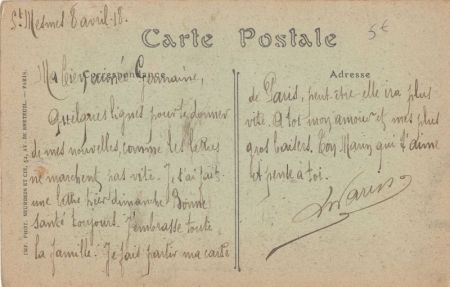 St Mesmes 8 avril-18.
5€
Carte Postale
Correspondance
Ma bien chère Germaine,
Quelques lignes pour te donner
de mes nouvelles, comme les lettres
ne marchent pas vite. Je t'ai fait
une lettre hier dimanche. Bonne
santé toujours. J'embrasse toute
la famille. Je fais partir ma carte
Adresse
de Paris, peut-être elle ira plus
vite. A toi mon amour et mes plus
gros baisers. Ton Marin qui t'aime
et pense à toi.
IMP. PHOT. NEURDEIN ET CIE, 52, AV. DE BRETEUIL. — PARIS.